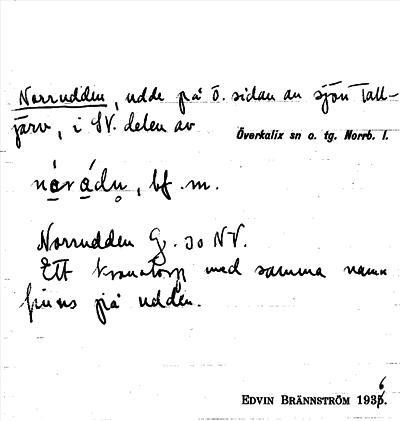 Norrudden, udde på ö. sidan av sjön Tall-
järv, i SV. delen av
Överkalix sn o. tg. Norrb. l.
nárádu̥, bf. m.
Norrudden G. 30 NV.
Ett kronotorp med samma namn
finns på udden.
EDVIN BRÄNNSTRÖM 1936.